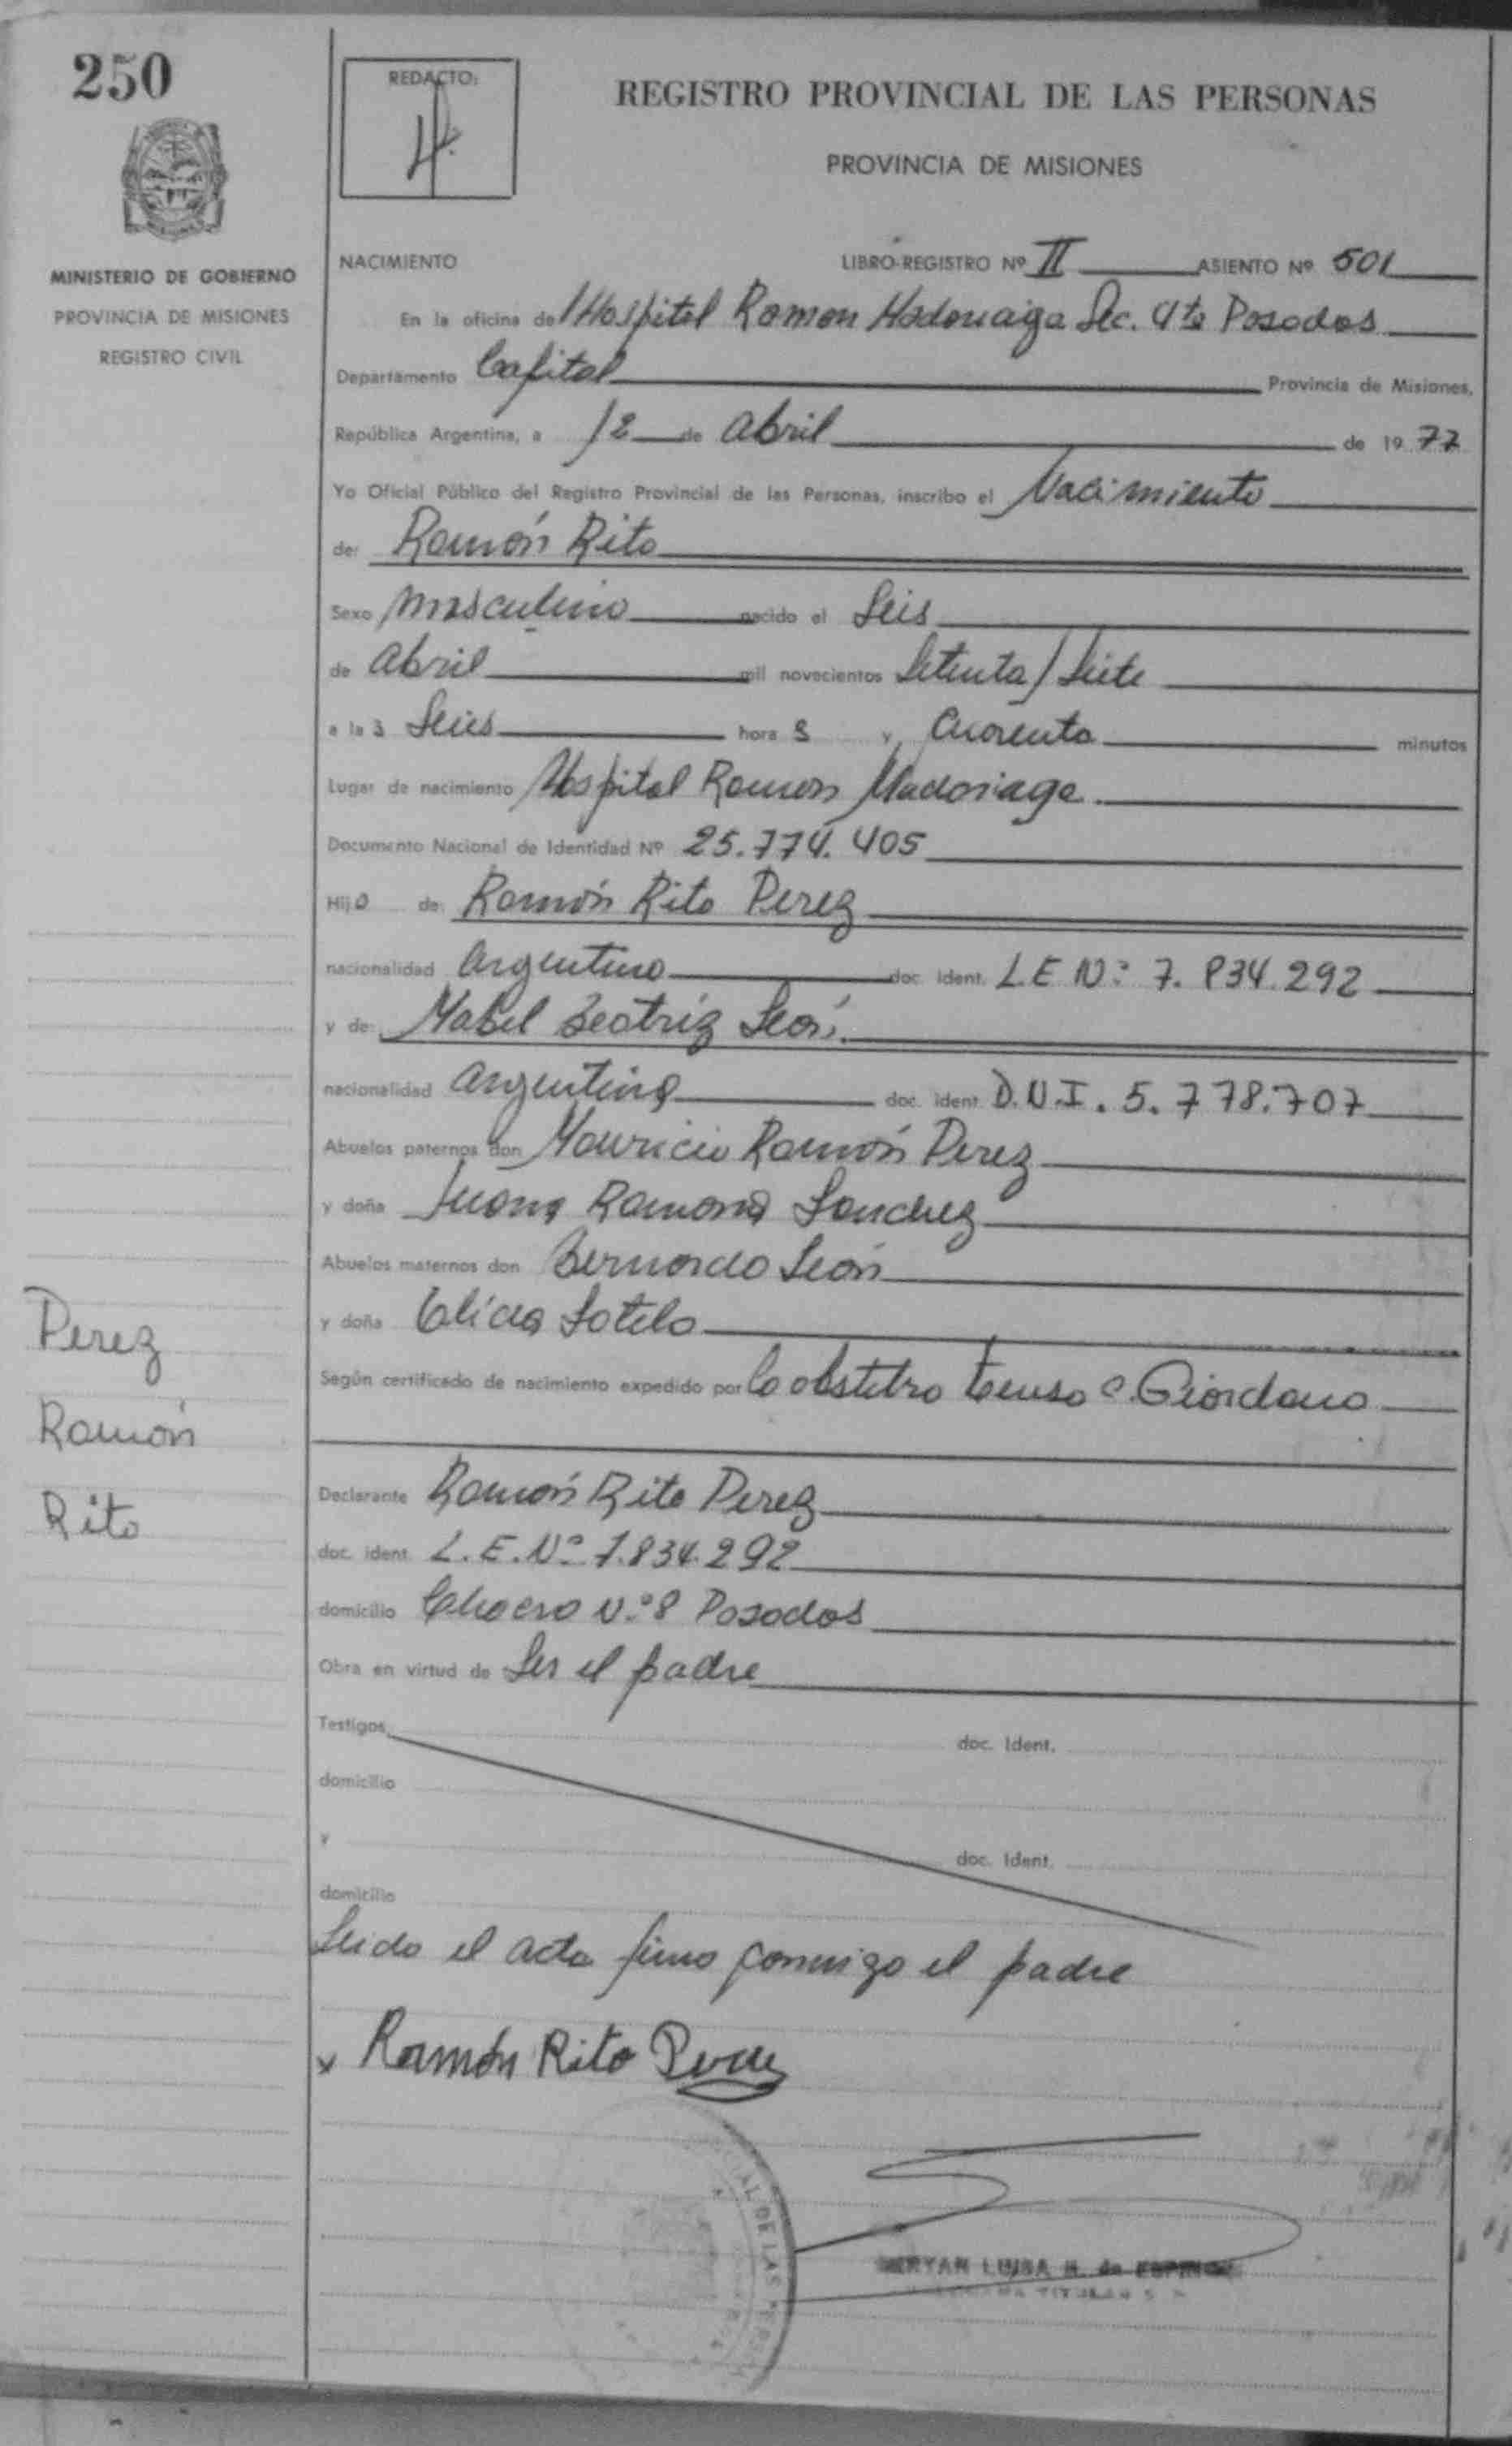 250
REDACTO:
REGISTRO PROVINCIAL DE LAS PERSONAS
PROVINCIA DE MISIONES
MINISTERIO DE GOBIERNO
PROVINCIA DE MISIONES
REGISTRO CIVIL
NACIMIENTO LIBRO-REGISTRO Nº II ASIENTO Nº 501
En la oficina del Hospital Ramon Madariaga Sec. 4ta Posadas
Departamento Capital Provincia de Misiones,
República Argentina, a 12 de Abril de 1977
Yo Oficial Público del Registro Provincial de las Personas, inscribo el Nacimiento
de: Ramón Rito
Sexo Masculino nacido el Seis
de Abril mil novecientos Setenta/Siete
a las Seis horas y Cuarenta minutos
Lugar de nacimiento Hospital Ramon Madariaga
Documento Nacional de Identidad Nº 25.774.405
Hijo de: Ramón Rito Perez
nacionalidad Argentino doc. ident. L.E Nº 7.834.292
y de: Mabel Beatriz León.
nacionalidad Argentina doc. ident. D.N.I. 5.778.707
Abuelos paternos don Mauricio Ramón Perez
y doña Juana Ramona Sanchez
Abuelos maternos don Bernardo León
y doña Elicia Sotelo
Según certificado de nacimiento expedido por la obstetra C. Giordano
Declarante Ramón Rito Perez
doc. ident. L.E.Nº 7.834.292
domicilio Chacra Nº 8 Posadas
Obra en virtud de Ser el padre
Testigos doc. Ident.
domicilio
y doc. Ident.
domicilio
Leido el acta firma conmigo el padre
x Ramón Rito Perez
Perez
Ramón
Rito
DE LAS
LUISA de
TITULAR